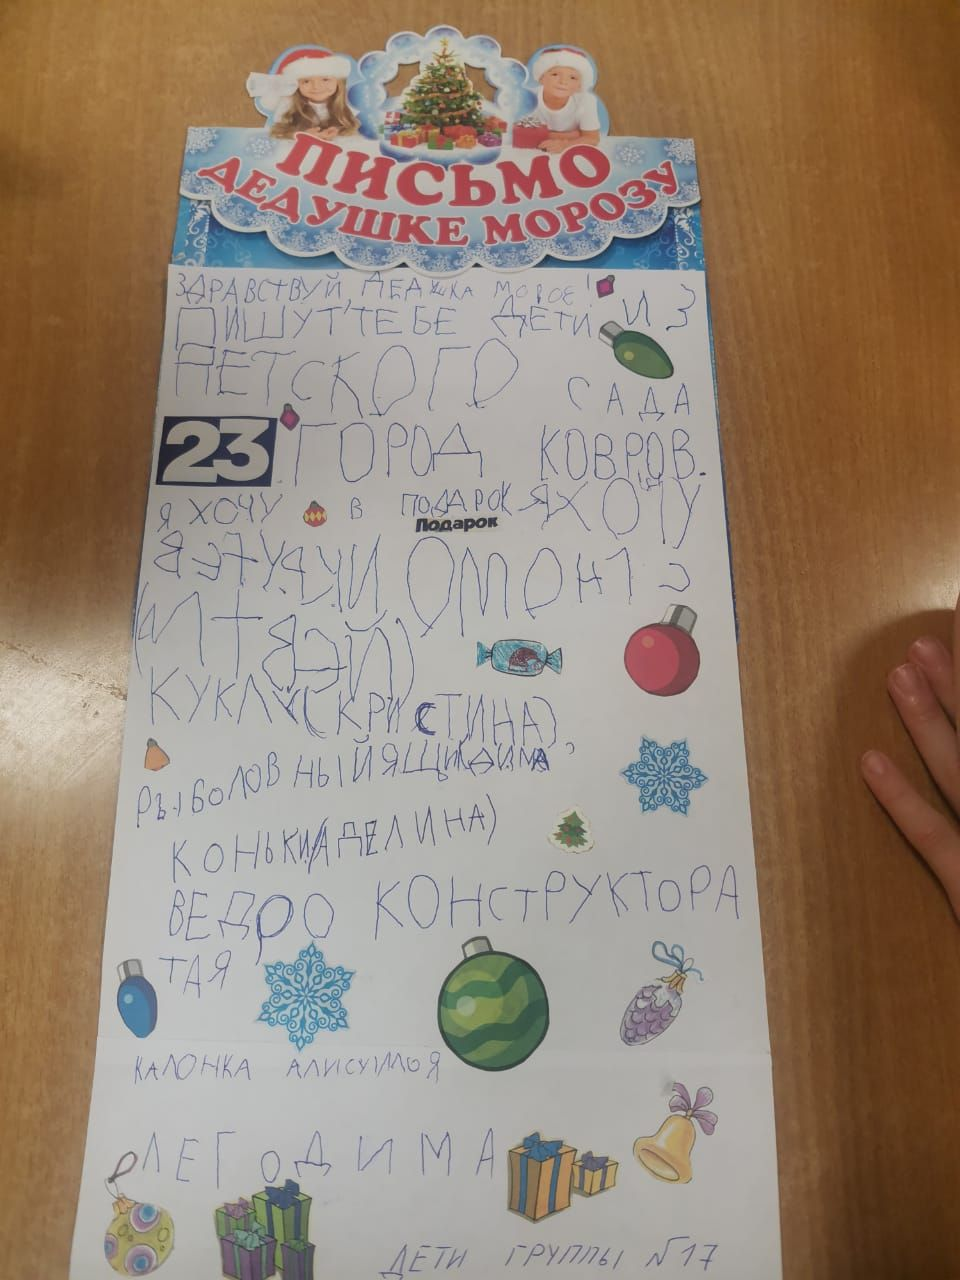 ПИСЬМО
ДЕДУШКЕ МОРОЗУ
ЗДРАВСТВУЙ, ДЕДУШКА МОРОЕ!
ПИШУТ ТЕБЕ ДЕТИ ИЗ
ДЕТСКОГО САДА
23 ГОРОД КОВРОВ.
Я ХОЧУ В ПОДАРОК Я ХОЧУ
Подарок
(МАТВЭЙ)
КУКЛУ (КРИСТИНА),
РЫБОЛОВНЫЙ ЯЩИК ДИМА,
КОНЬКИ (АДЕЛИНА)
ВЕДРО КОНСТРУКТОРА
ТАЯ
КАЛОНКА
ЛЕГО ДИМА
ДЕТИ ГРУППЫ №17